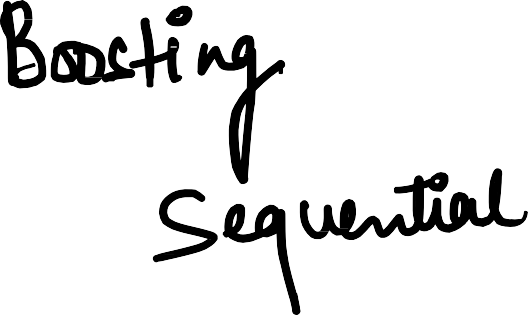 Boosting
Sequential